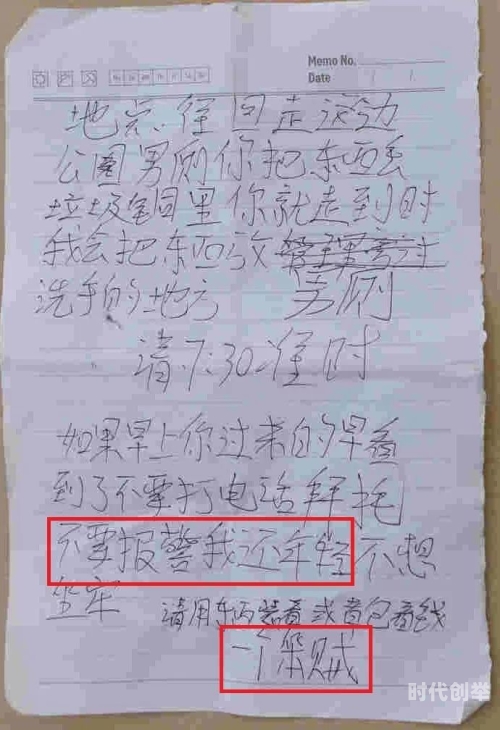 Memo No.
Date / /
地点.径回走运动
公園男厕你把东西丢
垃圾筒里你就走到时
我会把东西放
洗手的地方 男厕
请.7:30准时
如果早上你过来的早看
到了不要打电话拜托
不要报警我还年轻不想
坐牢 请用东西装着或者包着钱
一个笨贼
时代创举